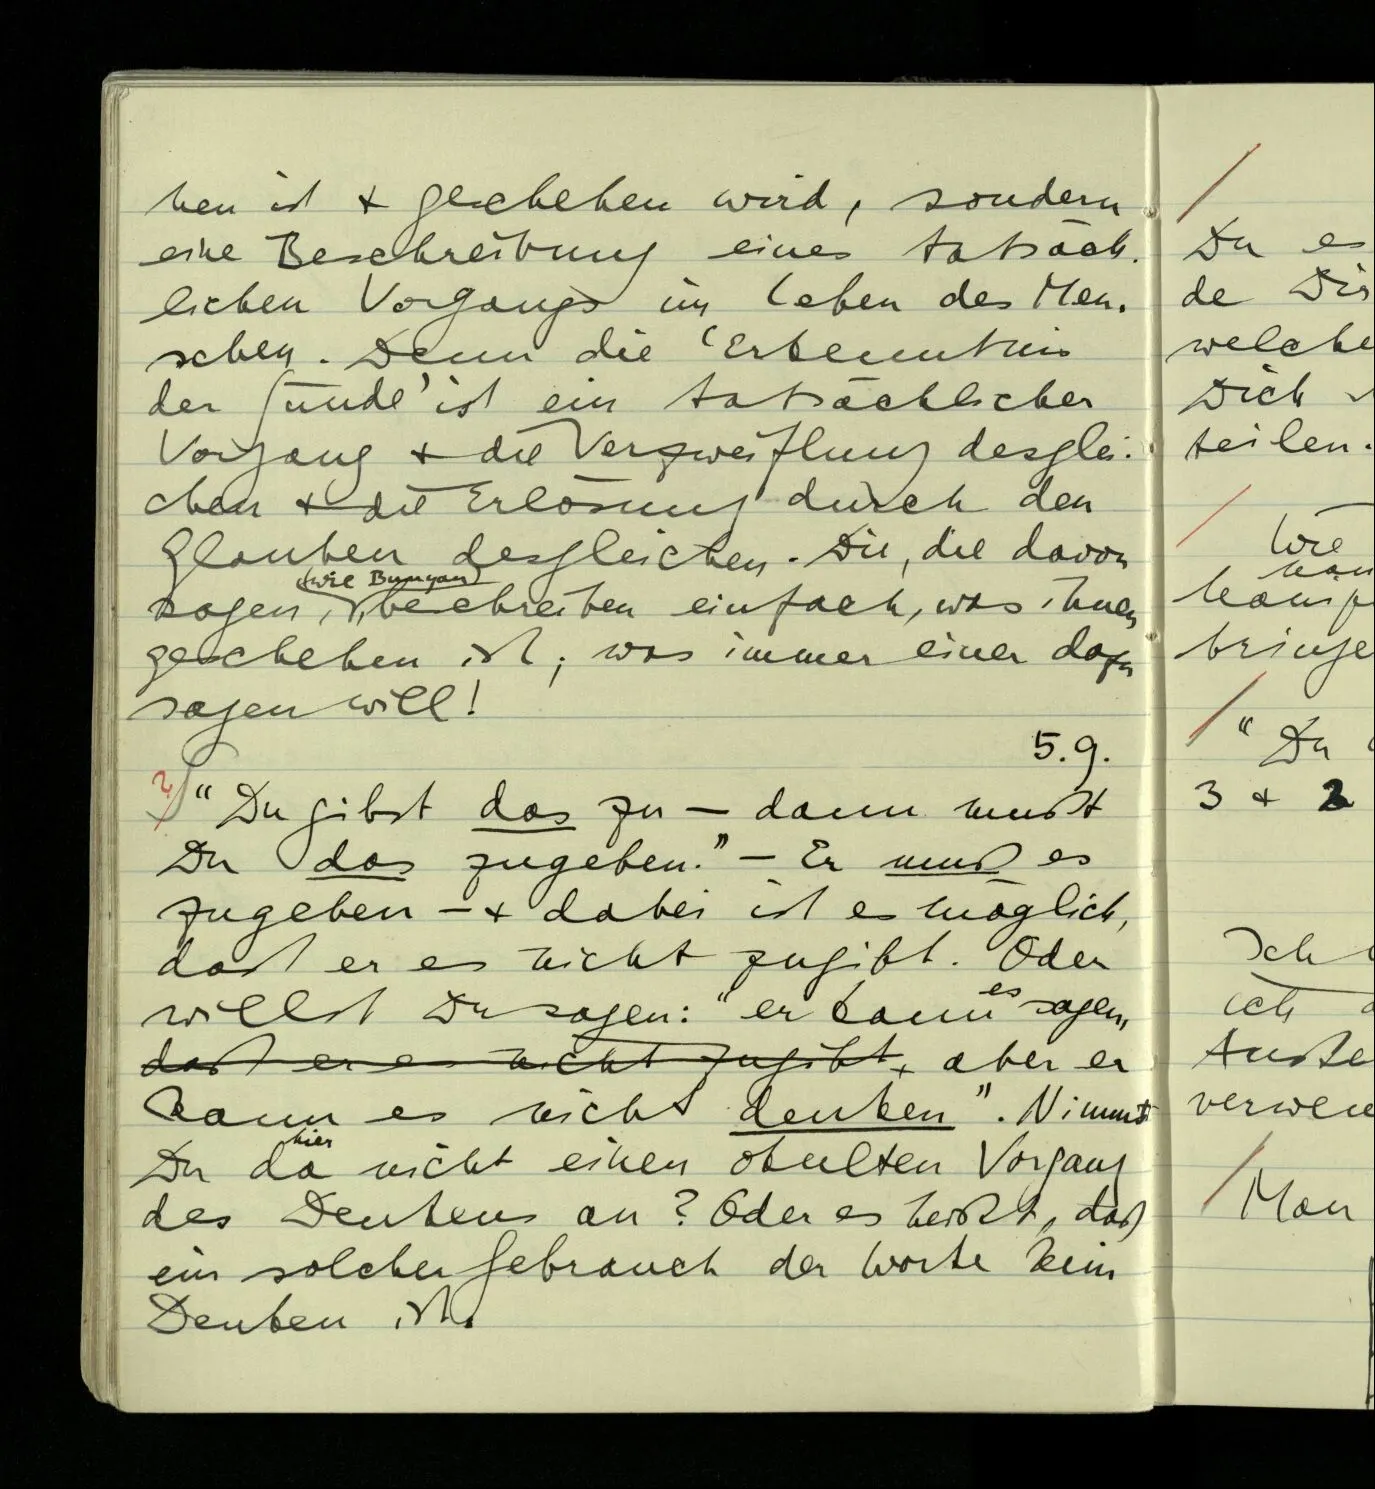 hen ist & geschehen wird, sondern
eine Beschreibung eines tatsäch-
lichen Vorgangs im Leben des Men-
schen. Denn die 'Erkenntnis
der Sünde' ist ein tatsächlicher
Vorgang & die Verzweiflung desglei-
chen & die Erlösung durch den
Glauben desgleichen. Die, die davon
(wie Bunyan)
sagen, beschreiben einfach, was ihnen
geschehen ist; was immer einer dazu
sagen will!
5.9.
? "Du gibst das zu — dann mußt
Du das zugeben." — Er muß es
zugeben — & dabei ist es möglich,
daß er es nicht zugibt. Oder
es
willst Du sagen: "er kann sagen,
daß er es nicht zugibt, aber er
kann es nicht denken". Nimmst
hier
Du da nicht einen okulten Vorgang
des Denkens an? Oder es heißt, daß
ein solcher Gebrauch der Worte kein
Denken ist.
/
Du es
de Dir
welche
Dich
teilen.
/
Wie
man
bringe
/ "Du
3 & 2
Ich
ich
verwen
/ Man